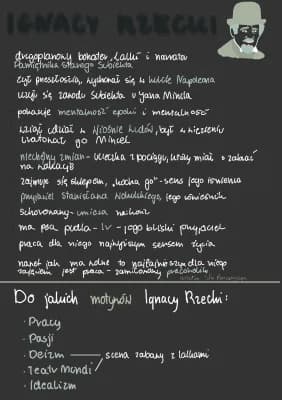 IGNACY RZECKI
drugoplanowy bohater „Lalki" i narrator
Pamiętnika starego Subiekta
żył przeszłością, wychował się w kulcie Napoleona
uczył się zawodu Subiekta u Jana Mincla
pokazuje mentalność epoki i mentalność
wziął udział w Wiośnie Ludów, był w więzieniu
uratował go Mincel
niechętny zmian - ucieczka z pociągu, który miał go zabrać
na wakacje
zajmuje się sklepem, „kocha go" - sens jego istnienia
przyjaciel Stanisława Wokulskiego, jego
schorowany - umiera na
ma psa pudla - Ir - jego bliski przyjaciel
praca dla niego najwyższym sensem życia
nawet jak ma wolne to najfajniejszym dla niego
zajęciem jest praca - zamiłowany pracoholik
Do jakich motywów Ignacy Rzecki:
· Pracy
· Pasji
· Deizm
scena zabawy z lalkami
· Teatr Mundi
· Idealizm